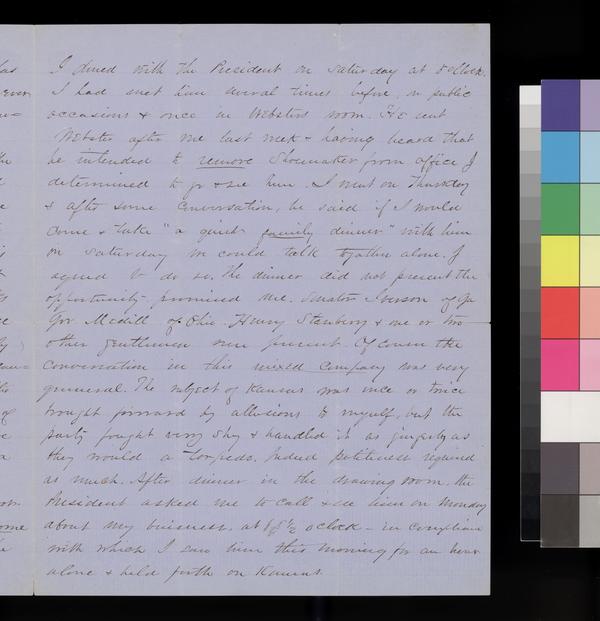 I dined with the President on Saturday at 5 o'clock.
I had met him several times before, on public
occasions & once in Websters room. He sent
Webster after me last week & having heard that
he intended to remove Shoemaker from office I
determined to go & see him. I went on Thursday
& after some conversation, he said if I would
come & take "a quiet family dinner" with him
on Saturday we could talk together alone. I
agreed to do so. The dinner did not present the
opportunity promised me. Senator Iverson of Ga
Gov Medill of Ohio. Henry Stanbery & one or two
other gentlemen were present. Of course the
conversation in this mixed company was very
general. The subject of Kansas was once or twice
brought forward by allusions to myself, but the
party fought very shy & handled it as gingerly as
they would a torpedo. Indeed politeness required
as much. After dinner in the drawing room, the
President asked me to call & see him on Monday
about my business, at ½ o'clock - in compliance
with which I saw him this morning for an hour
alone & held forth on Kansas.